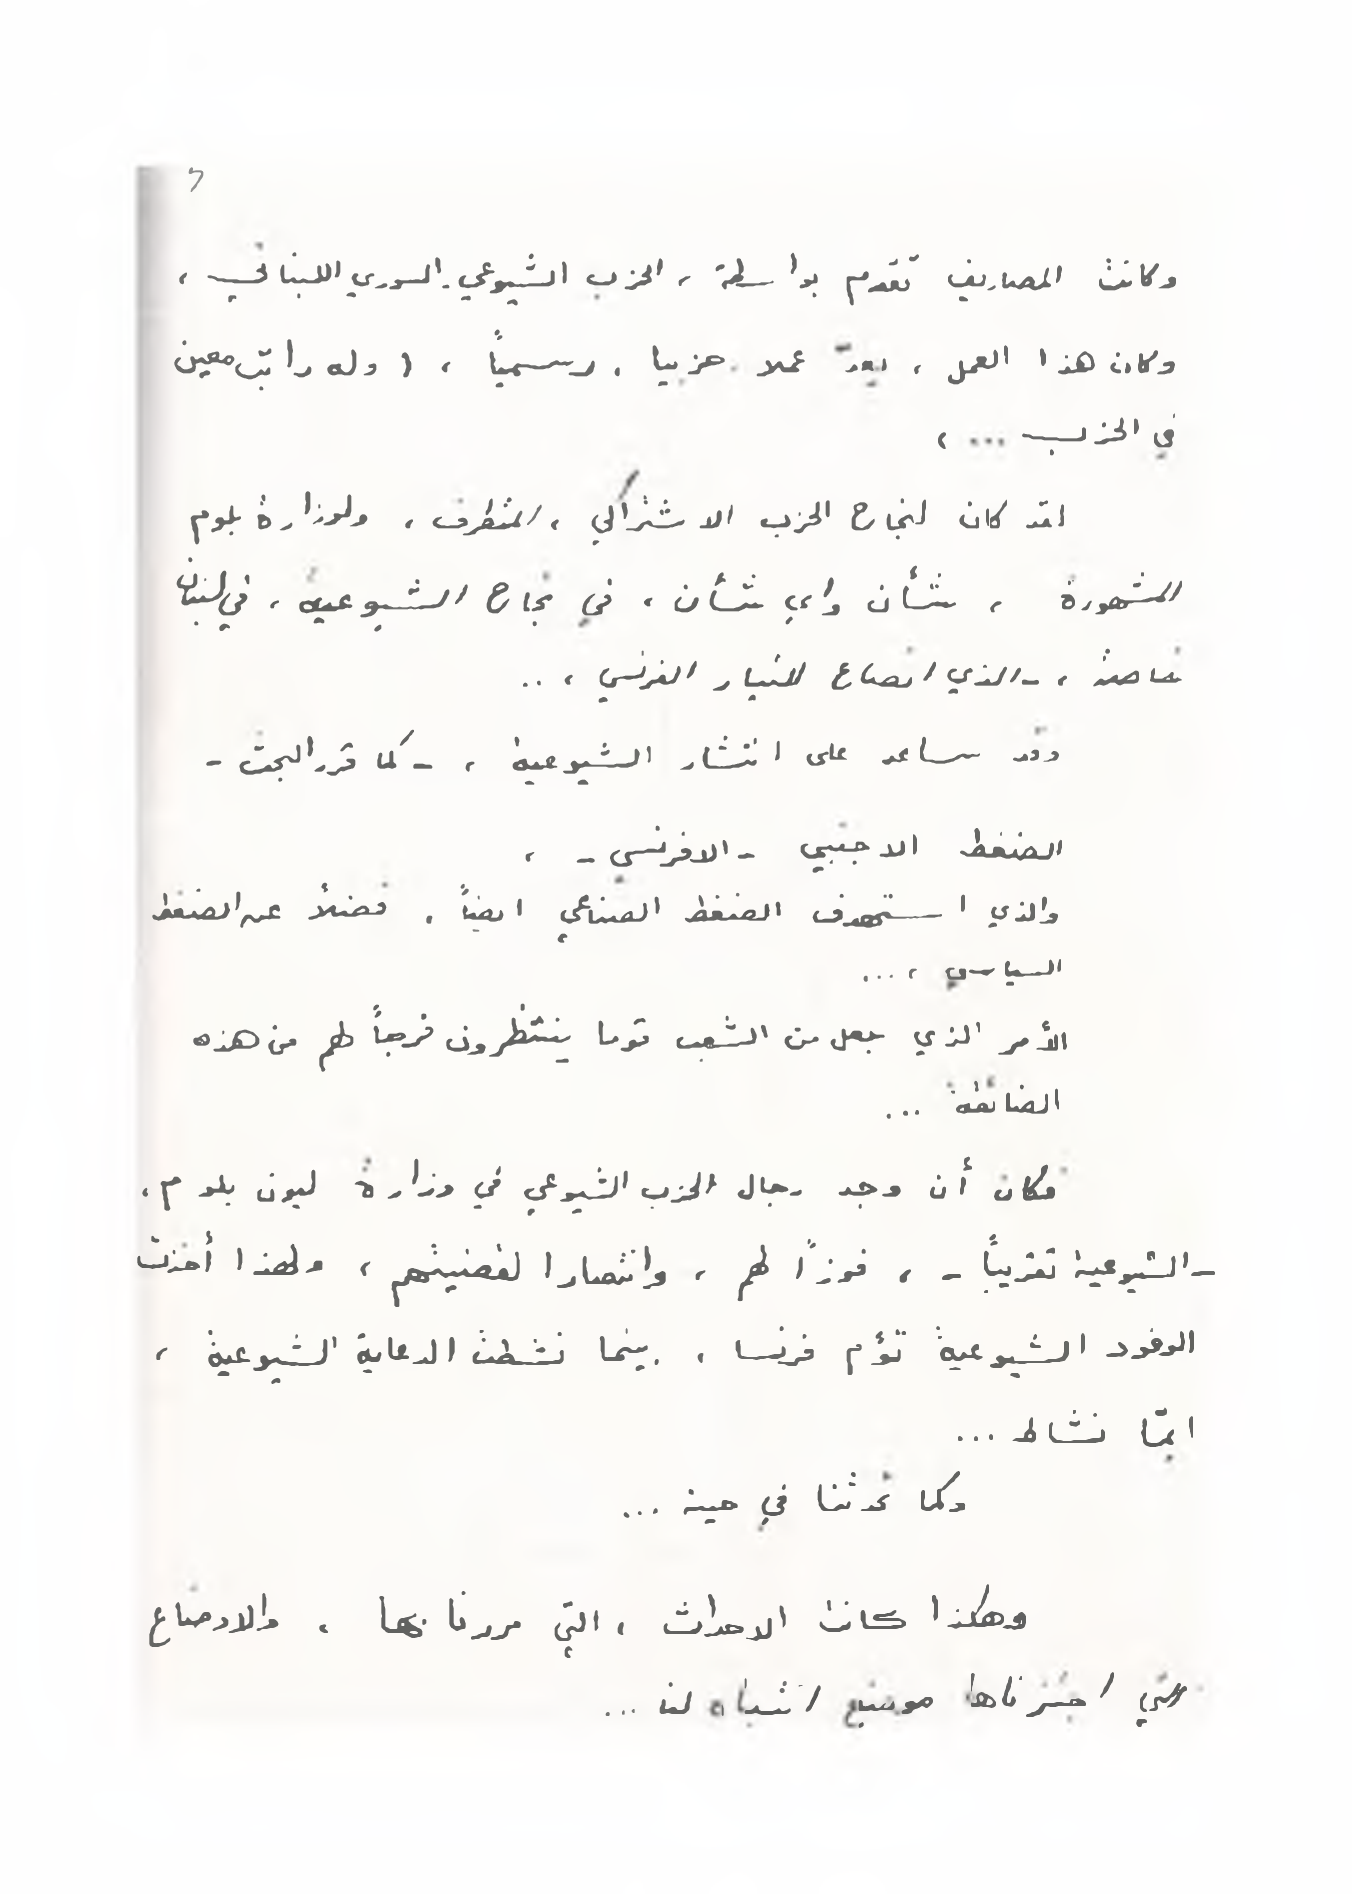 وكانت المصاريف تقدم بواسطة ، الحزب الشيوعي السوري اللبناني ،
وكان هذا العمل ، يعدّ عملا حزبيا ، رسمياً ، ( وله راتب معين
في الحزب ... )
لقد كان لنجاح الحزب الاشتراكي ، المتطرف ، ولوزارة بلوم
المشهورة ، شأن واي شأن ، في نجاح الشيوعية ، في لبنان
خاصة ، - الذي انصاع للتيار الفرنسي ، ..
وقد ساعد على انتشار الشيوعية ، - كما قرر البحث -
الضغط الاجنبي - الافرنسي - ،
والذي استهدف الضغط الصناعي ايضاً ، فضلاً عن الضغط
السياسي ، ...
الأمر الذي جعل من الشعب قوما ينتظرون فرجاً لهم من هذه
الضائقة ...
فكان أن وجد رجال الحزب الشيوعي في وزارة ليون بلوم ،
- الشيوعية تقريباً - ، فوزاً لهم ، وانتصارا لقضيتهم ، ولهذا أخذت
الوفود الشيوعية تؤم فرنسا ، بينما نشطت الدعاية الشيوعية ،
ايّما نشاط ...
وكما تحدثنا في حينه ...
وهكذا كانت الاحداث ، التي مررنا بها ، والاوضاع
التي اجتزناها موضع انتباه لنا ...